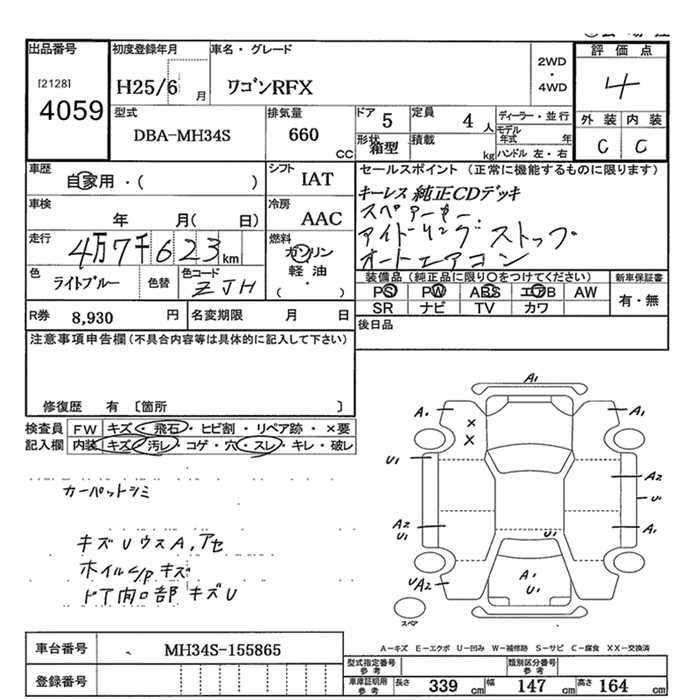 出品番号 初度登録年月 車名・グレード 評価点
[2128] 4059 H25/6月 ワゴンRFX 2WD・4WD 4
型式 DBA-MH34S 排気量 660 CC ドア 5 定員 4人 ディーラー・並行 外装 内装
形状 箱型 積載 kg モデル年式 年 ハンドル 左・右 C C
車歴 自家用・( ) シフト IAT セールスポイント (正常に機能するものに限ります)
キーレス 純正CDデッキ
車検 年 月( 日) 冷房 AAC スペアーキー
アイドリングストップ
走行 4万7千623km 燃料 ガソリン・軽油・( ) オートエアコン
色 ライトブルー 色替 色コード ZJH 装備品(純正品に限り○をつけてください) 新車保証書
PS PW ABS エアB AW 有・無
R券 8,930円 名変期限 月 日 SR ナビ TV カワ
注意事項申告欄(不具合内容等は具体的に記入して下さい) 後日品
修復歴 有 〔箇所 〕
検査員記入欄 FW キズ・飛石・ヒビ割・リペア跡・×要
内装 キズ・汚レ・コゲ・穴・スレ・キレ・破レ
A1
A. A1
× ×
U1 A2
U1
A2 U1 U1 A1
UA2 A1 U1
スペア
カーペットシミ
キズUウスA,アセ
ホイルC/Pキズ
ドア開口部キズU
A-キズ E-エクボ U-凹み W-補修跡 S-サビ C-腐食 XX-交換済
車台番号 MH34S-155865
型式指定番号参考 類別区分番号参考
登録番号 車庫証明用参考 長さ 339cm 幅 147cm 高さ 164cm